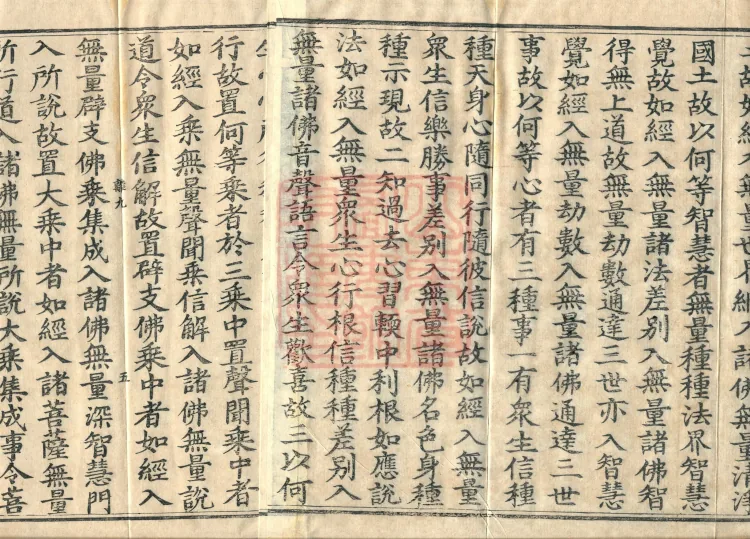 故如經入諸佛無量清淨
國土故以何等智慧者無量種種法界智慧
覺故如經入無量諸法差別入無量諸佛智
得無上道故無量劫數通達三世亦入智慧
覺如經入無量劫數入無量諸佛通達三世
事故以何等心者有三種事一有眾生信種
種天身心隨同行隨彼信說故如經入無量
眾生信樂勝事差別入無量諸佛名色身種
種示現故二知過去心習輭中利根如應說
法如經入無量眾生心行根信種種差別入
無量諸佛音聲語言令眾生歡喜故三以何
行故置何等乘者於三乘中置聲聞乘中者
如經入乘無量聲聞乘信解入諸佛無量說
道令眾生信解故置辟支佛乘中者如經入
雜九 五
無量辟支佛乘集成入諸佛無量深智慧門
入所說故置大乘中者如經入諸菩薩無量
所行道入諸佛無量所說大乘集成事令菩